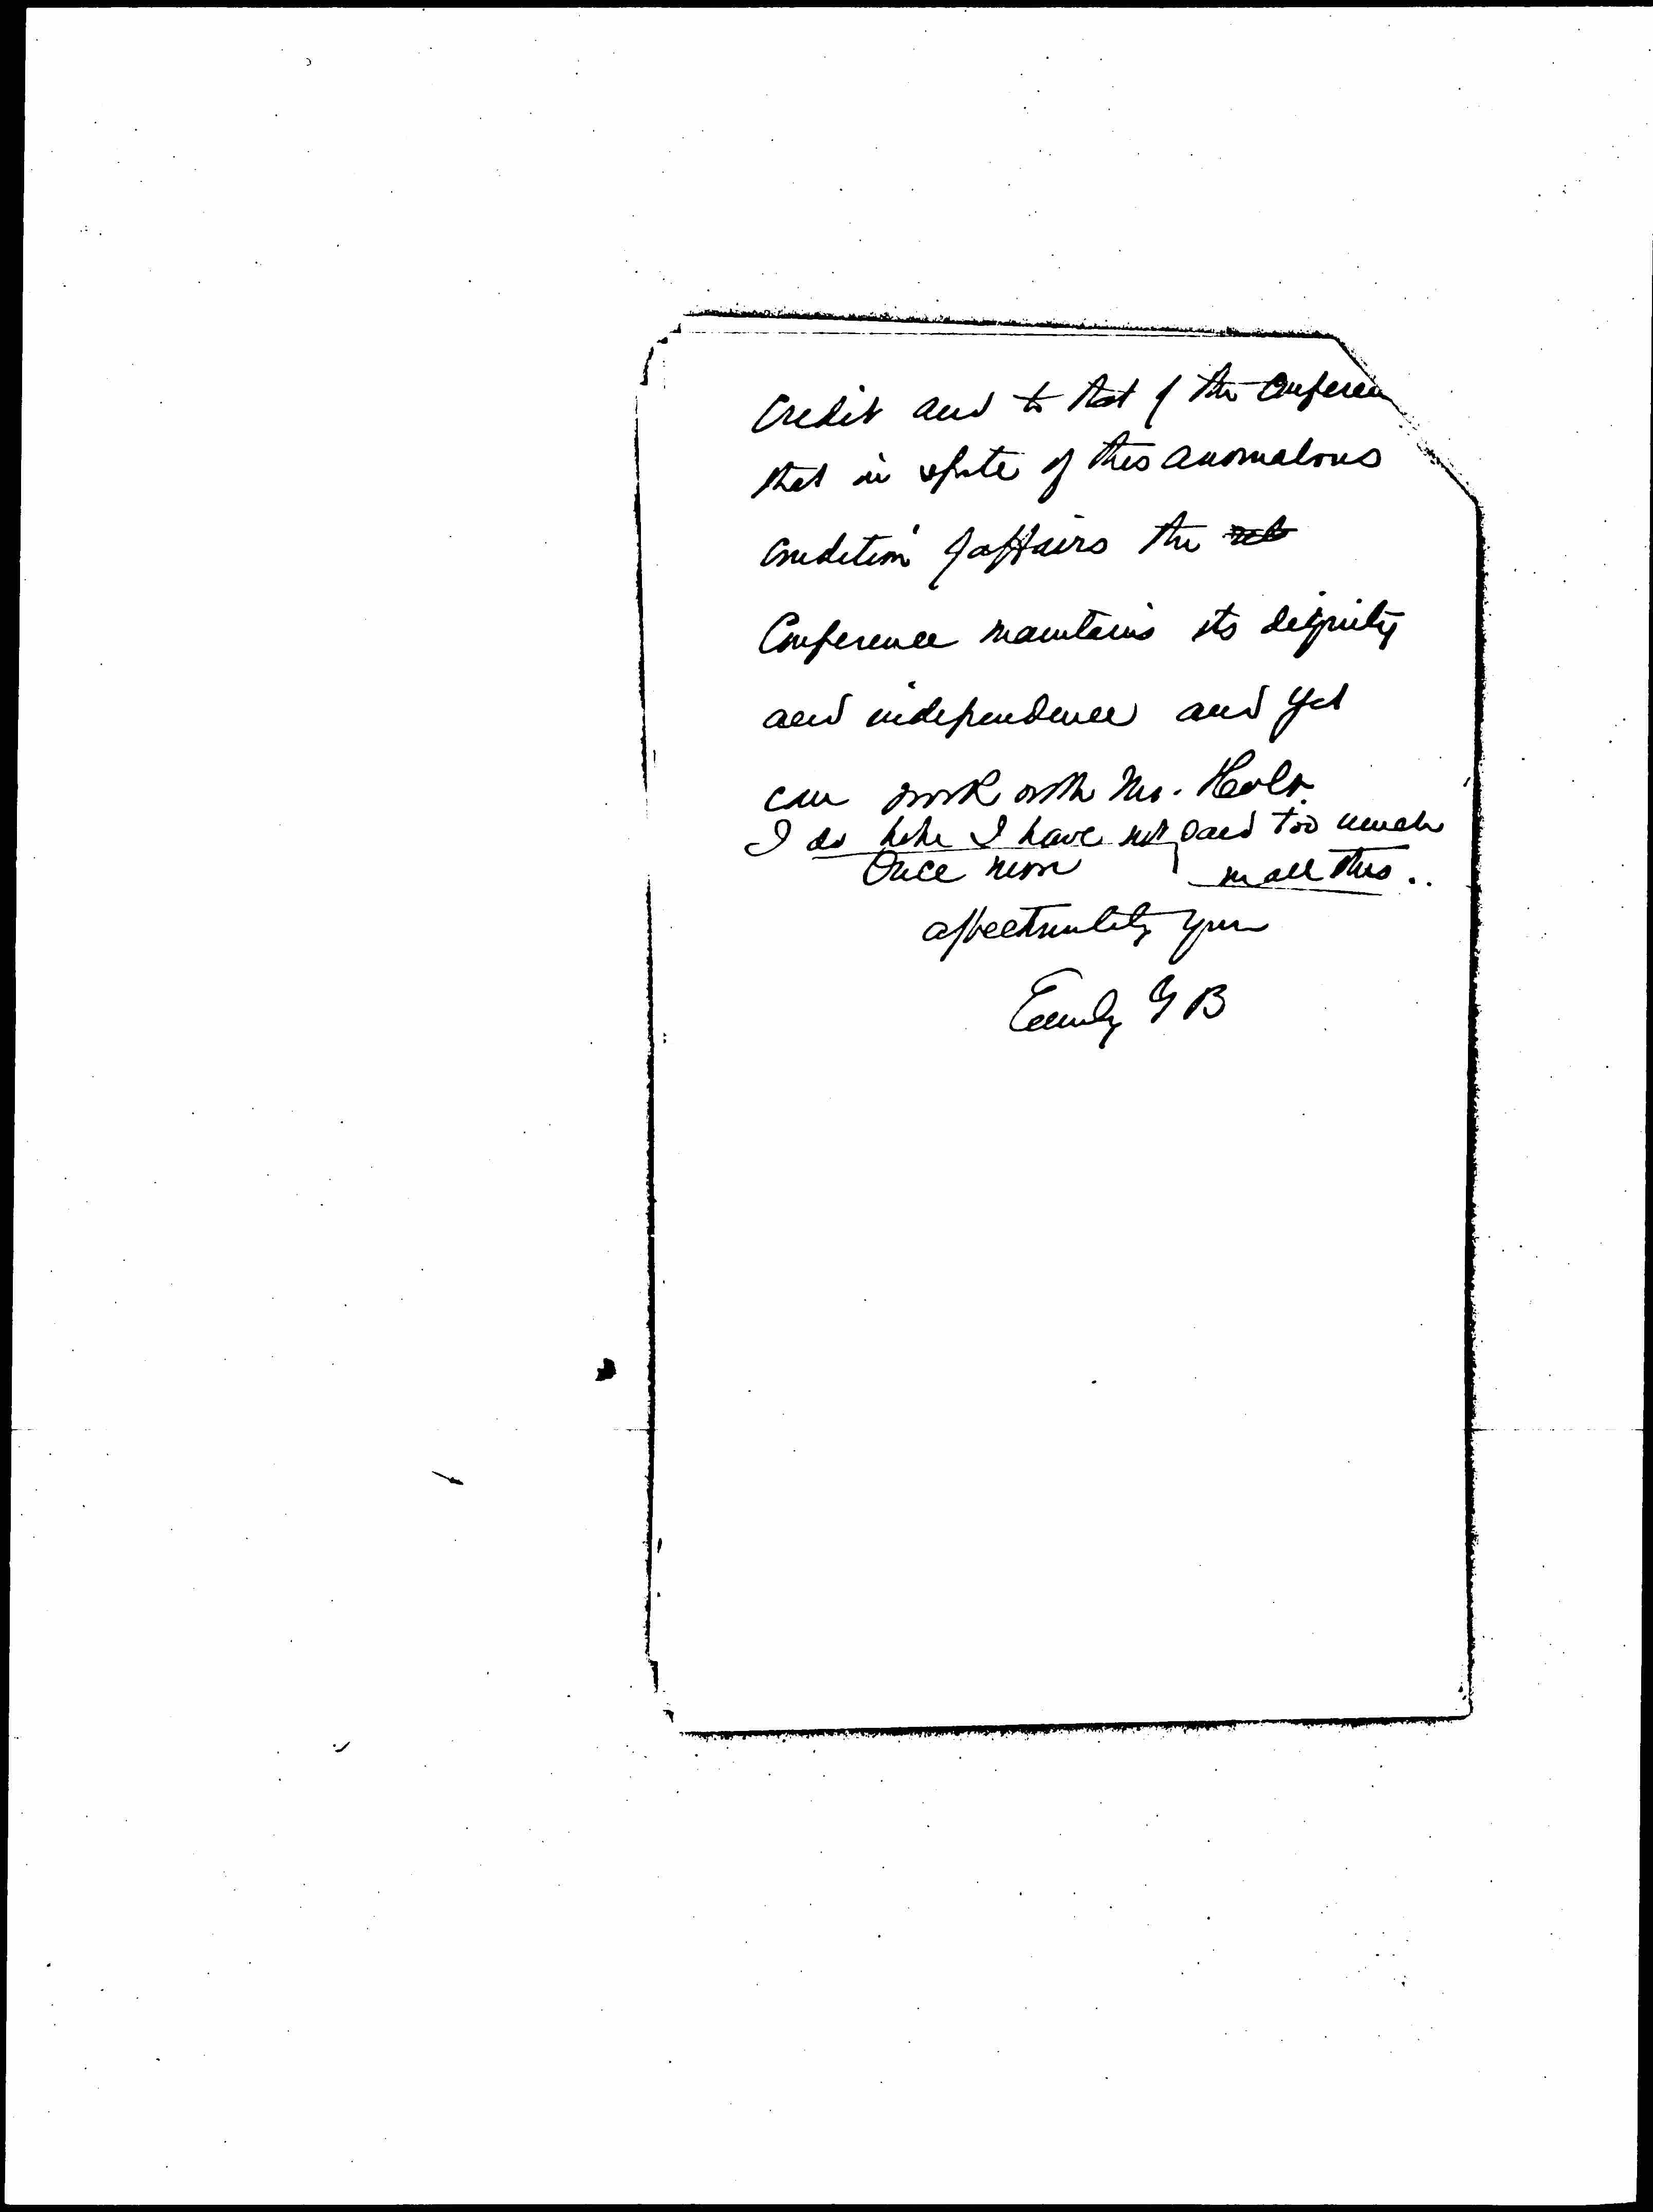 credit and to that of the Conferen
that in spite of this anomalous
condition of affairs the
Conference maintains its dignity
and independence and yet
can work with Mr. Holt.
I do hope I have not said too much
in all this..
Once more
affectionately yours
Emily G B